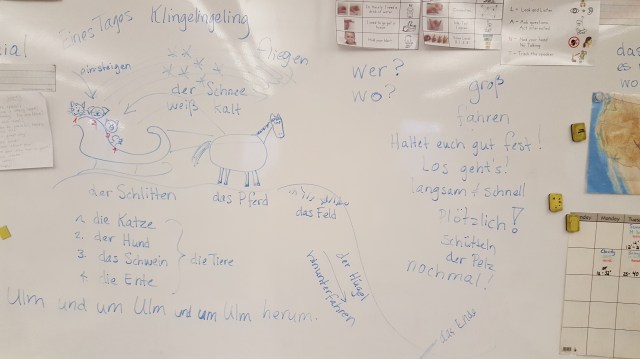 Eines Tages
Klingelingeling
fliegen
einsteigen
der Schnee
weiß kalt
1 2
4
der Schlitten
das Pferd
das Feld
1. die Katze
2. der Hund
3. das Schwein
4. die Ente
die Tiere
der Hügel
herunterfahren
das Ende
Ulm und um Ulm und um Ulm herum.
wer?
wo?
groß
fahren
Haltet euch gut fest!
Los geht's!
langsam / schnell
Plötzlich!
schütteln
der Pelz
nochmal!
das
es
wo
Monday